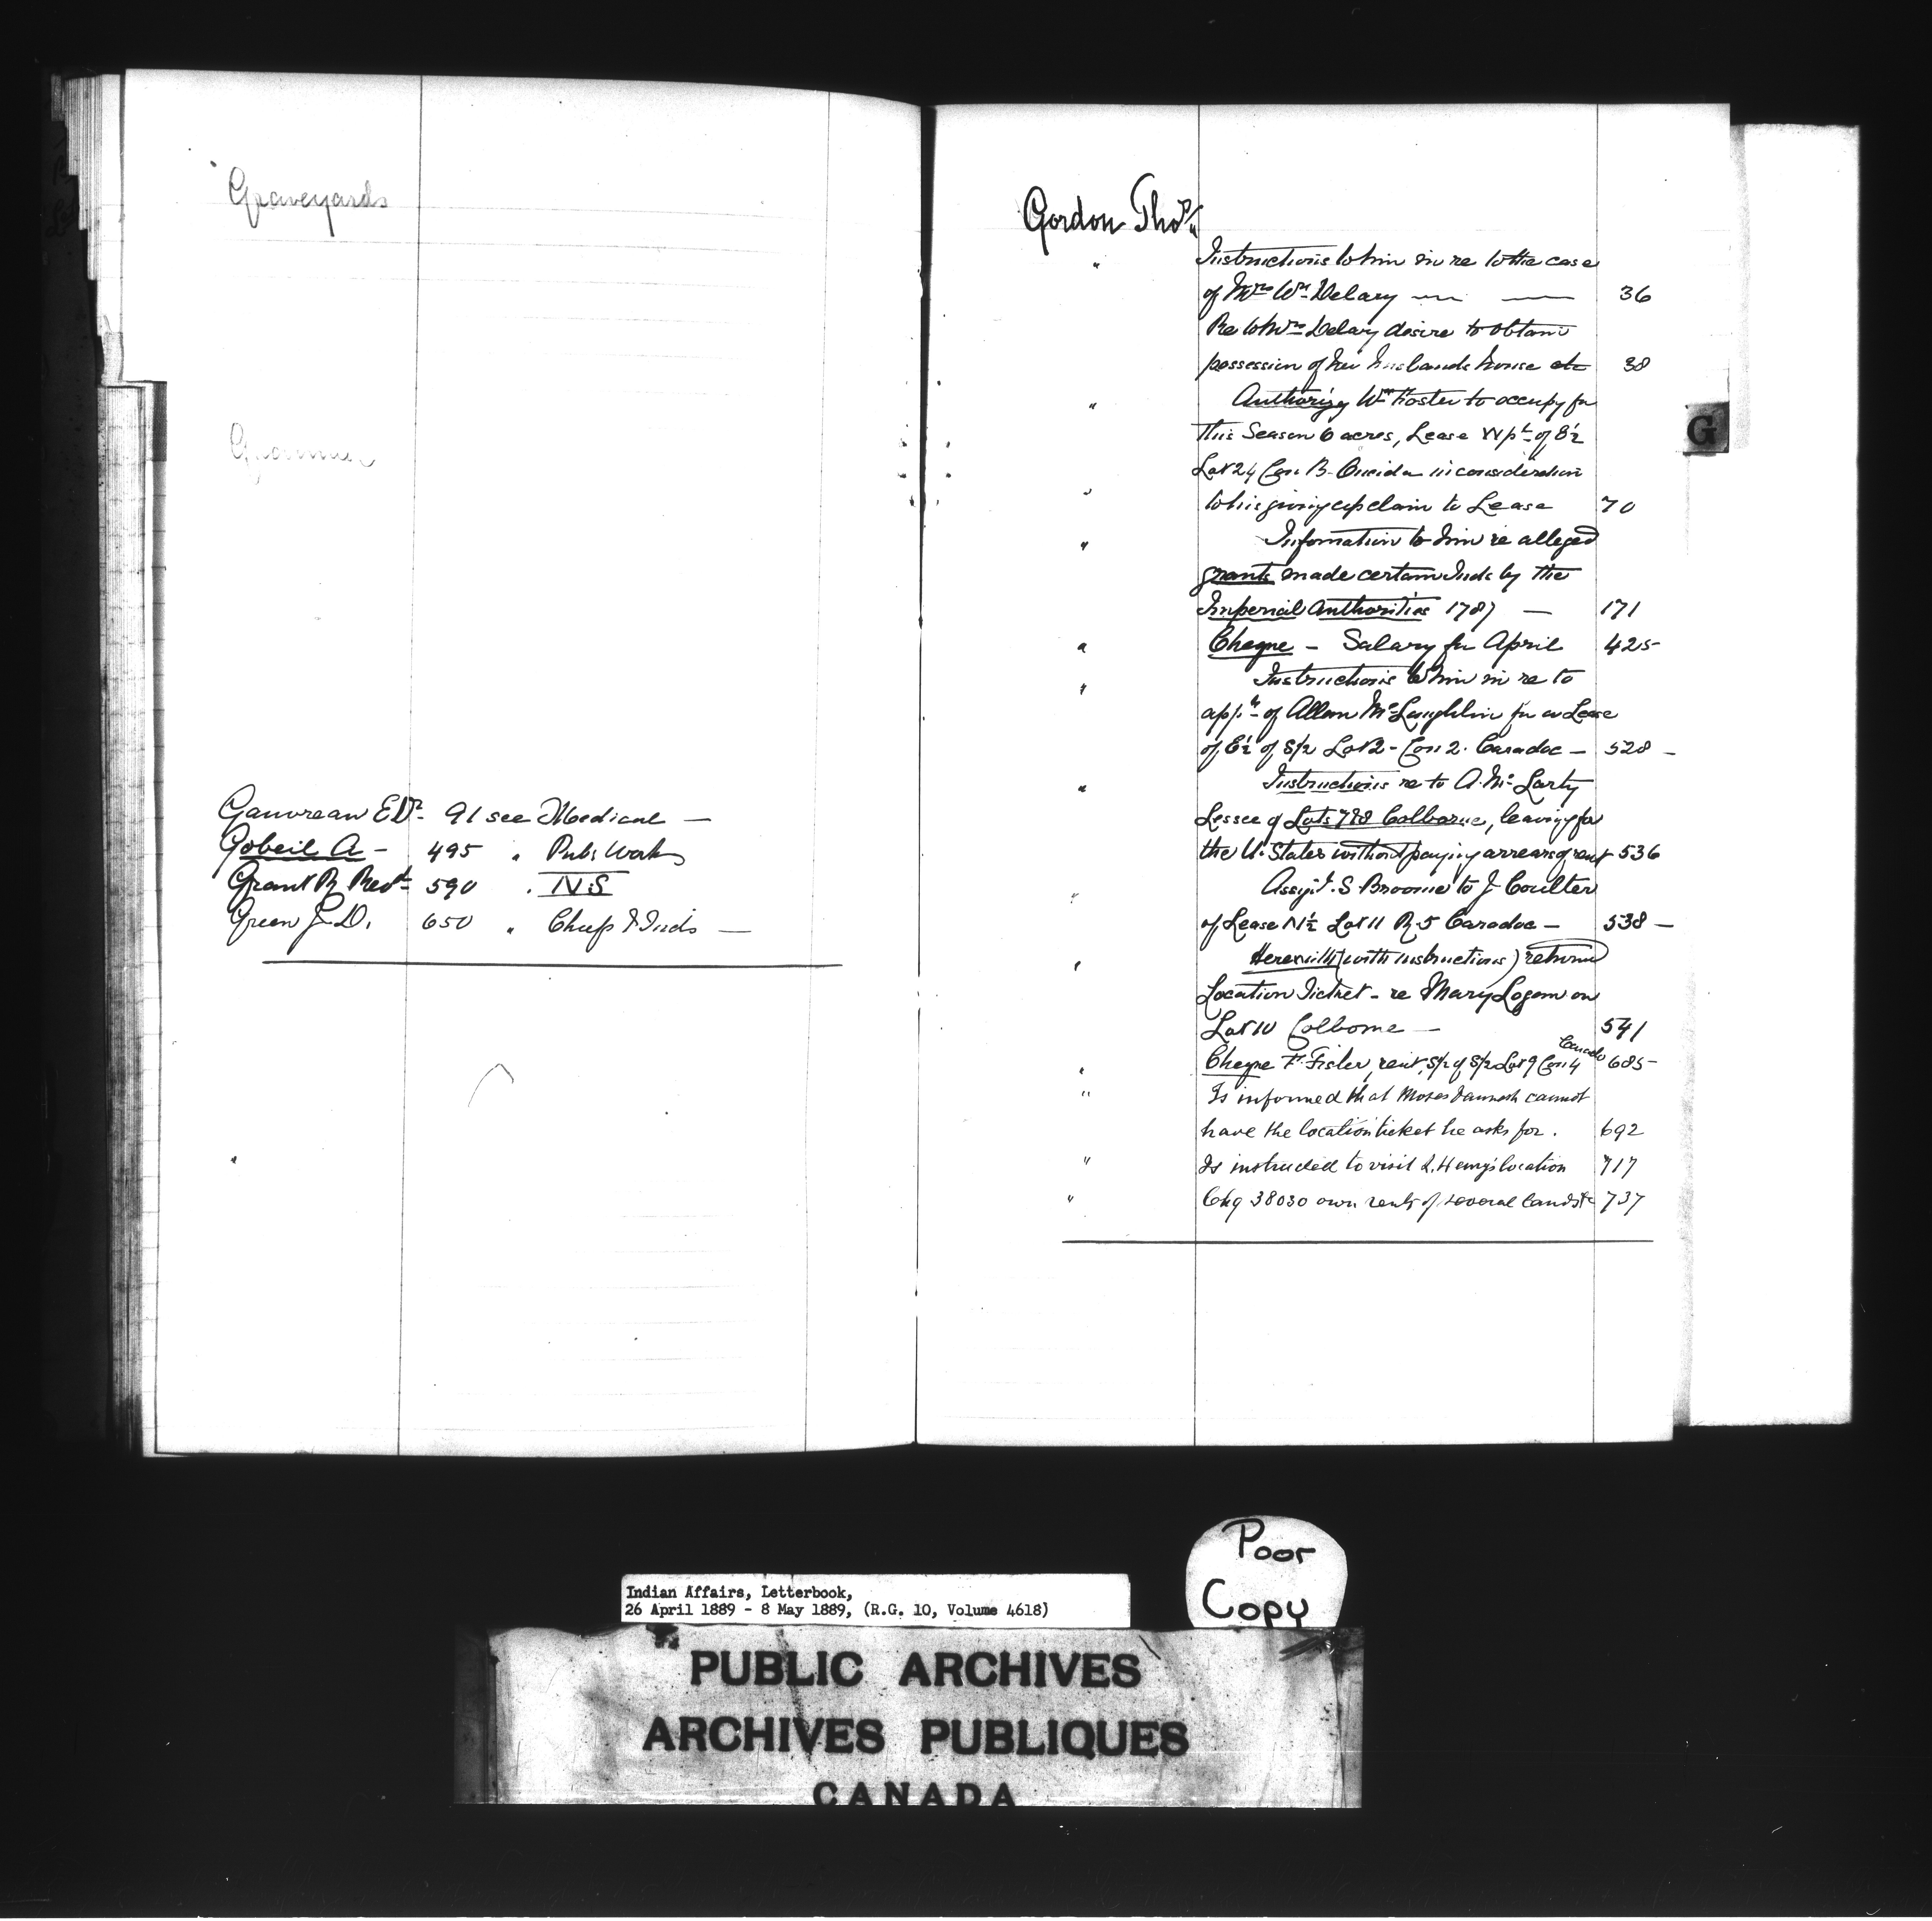 Graveyards
Gauvreau E Dr - 91 see Medical —
Gobeil A - 495 " Pub: Works
Grant R Revd - 590 . N.S
Green J. D. 650 " Chiefs & Inds —
Gordon Thos
" Instructions to him in re to the case
of Mrs Wm Delary — — 36
Re to Mrs Delary desire to obtain
possession of her husbands house etc 38
" Authorizg Wm Foster to occupy for
this Season 6 acres, Lease W pt of S½
Lot 24 Con B. Oneida in consideration
" to his giving up claim to Lease 70
" Information to him re alleged
grants made certain Inds by the
Imperial Authorities 1787 — 171
" Cheque - Salary for April 425-
" Instructions to him in re to
appn of Allan McLaughlin for a Lease
of E½ of S/2 Lot 2 - Con 2. Caradoc - 528 -
" Instructions re to A. McLarty
Lessee of Lots 7&8 Colborne, leaving for
the U. States without paying arrears of rent 536
" Assgt. S. Broome to J Coulter
of Lease N½ Lot 11 R. 5 Caradoc - 538 -
" Herewith (with instructions) returned
Location Ticket - re Mary Logan on
Lot 10 Colborne — 541
" Cheque F. Fisher, rent, S/2 of S/2 Lot 9 Con 4 Carado 685-
" Is informed that Moses cannot
have the location ticket he asks for. 692
" Is instructed to visit L. Henry's location 717
" Chq 38030 own rents of several lands &c 737
G
Poor
Copy
Indian Affairs, Letterbook,
26 April 1889 - 8 May 1889, (R.G. 10, Volume 4618)
PUBLIC ARCHIVES
ARCHIVES PUBLIQUES
CANADA